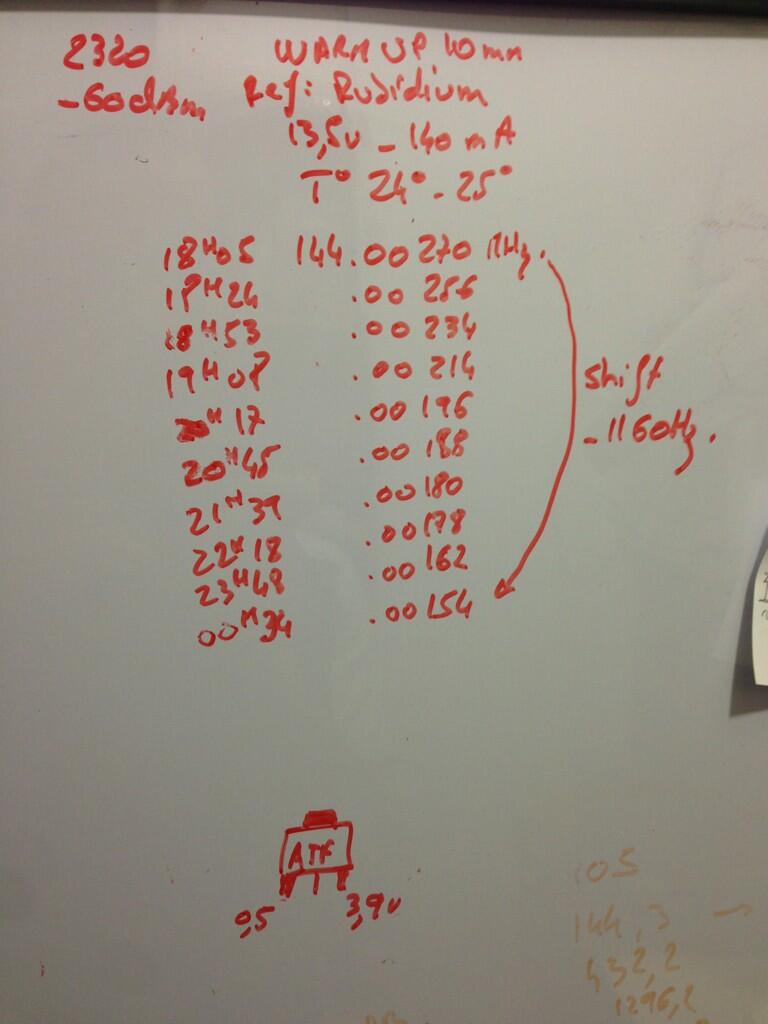 2320 WARM UP 10 mn
-60dBm Ref: Rubidium
13,5v - 140 mA
T° 24° - 25°
18H05 144.00 270 MHz.
18H24 .00 256
18H53 .00 234
19H08 .00 214
20H17 .00 196
20H45 .00 188
21H39 .00 180
22H18 .00 178
23H48 .00 162
00H34 .00 154
Shift
-1160Hz.
ATF
0,5 3,9v
105
144,3
432,2
1296,2